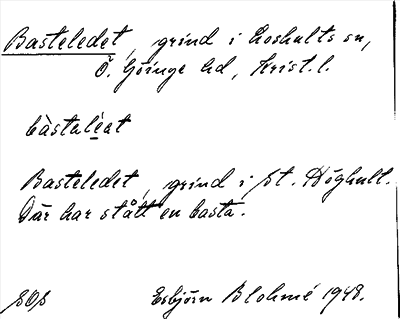 Basteledet, grind i Loshults sn,
Ö. Göinge hd, Krist. l.
bàstalèat
Basteledet, grind i St. Höghult.
Där har stått en basta.
SOS Esbjörn Blohmé 1948.